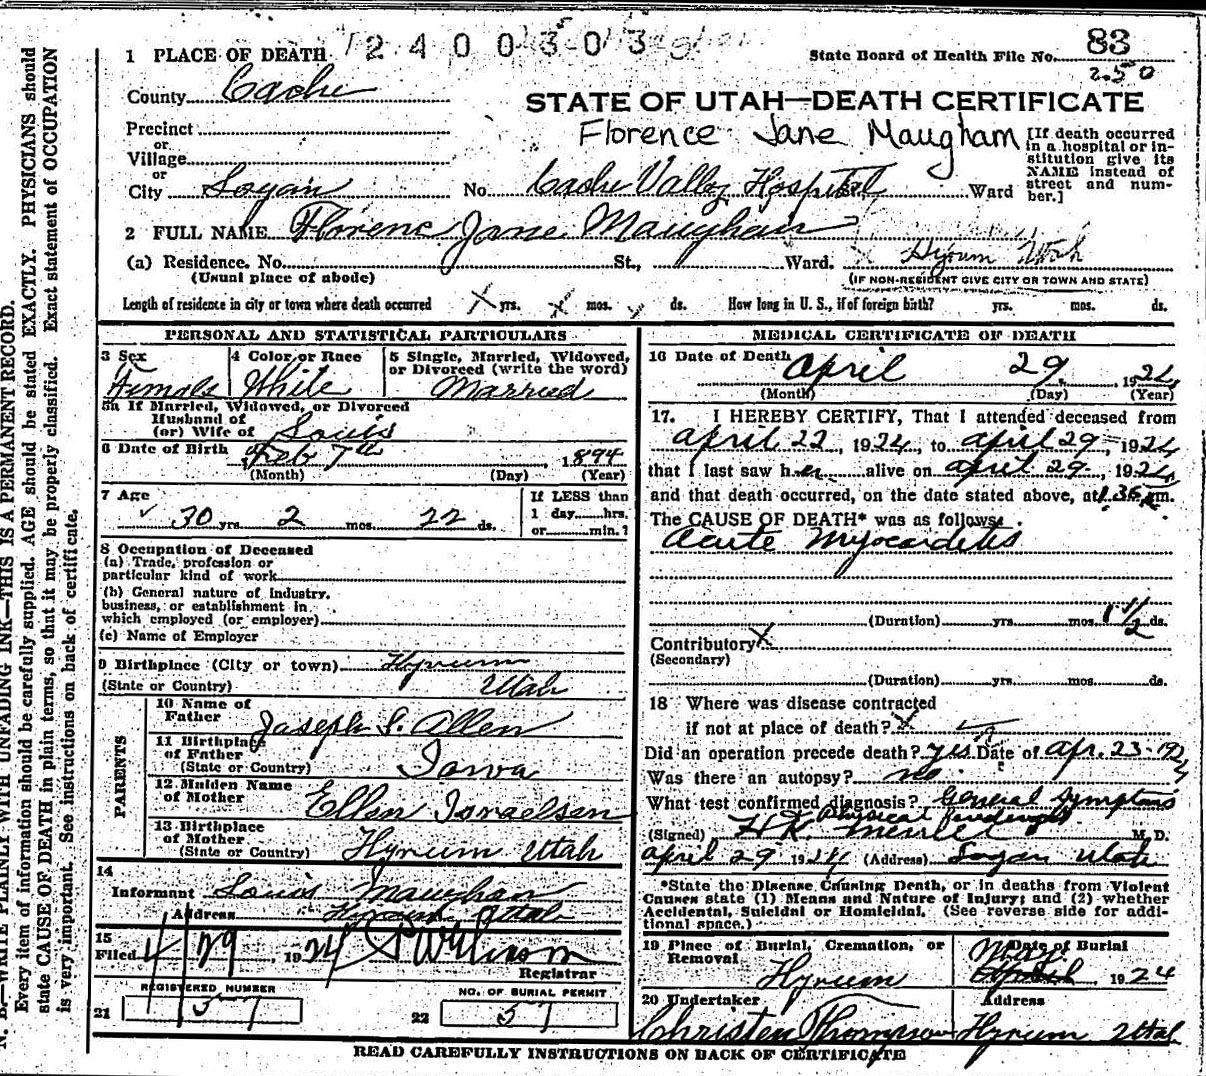 2400303
State Board of Health File No. 83
250
1 PLACE OF DEATH
County Cache
STATE OF UTAH—DEATH CERTIFICATE
Precinct
or
Village
or
City Logan No. Cache Valley Hospital St., Ward
Florence Jane Maugham
[If death occurred in a hospital or institution give its NAME instead of street and number.]
2 FULL NAME Florenc Jane Maughan
(a) Residence. No. St., Ward. Hyrum Utah
(Usual place of abode) (IF NON-RESIDENT GIVE CITY OR TOWN AND STATE)
Length of residence in city or town where death occurred X yrs. X mos. ds. How long in U. S., if of foreign birth? yrs. mos. ds.
PERSONAL AND STATISTICAL PARTICULARS
3 Sex Female
4 Color or Race White
5 Single, Married, Widowed, or Divorced (write the word) Married
5a If Married, Widowed, or Divorced
Husband of
(or) Wife of Louis
6 Date of Birth Feb 7th, 1894
(Month) (Day) (Year)
7 Age
30 yrs. 2 mos. 22 ds.
If LESS than
1 day hrs.
or min.?
8 Occupation of Deceased
(a) Trade, profession or
particular kind of work
(b) General nature of industry,
business, or establishment in
which employed (or employer)
(c) Name of Employer
9 Birthplace (City or town) Hyrum
(State or Country) Utah
PARENTS
10 Name of
Father Joseph S. Allen
11 Birthplace
of Father
(State or Country) Iowa
12 Maiden Name
of Mother Ellen Israelsen
13 Birthplace
of Mother
(State or Country) Hyrum Utah
14
Informant Louis Maughan
Address Hyrum Utah
15
Filed 4/29, 1924
Registrar
REGISTERED NUMBER
21 57
NO. OF BURIAL PERMIT
22 57
MEDICAL CERTIFICATE OF DEATH
16 Date of Death April 29, 1924
(Month) (Day) (Year)
17. I HEREBY CERTIFY, That I attended deceased from
april 22, 1924, to april 29, 1924
that I last saw her alive on april 29, 1924
and that death occurred, on the date stated above, at 1.36 m.
The CAUSE OF DEATH* was as follows:
Acute Myocarditis
(Duration) yrs. mos. 1 1/2 ds.
Contributory X
(Secondary)
(Duration) yrs. mos. ds.
18 Where was disease contracted
if not at place of death? X
Did an operation precede death? yes Date of Apr. 23-1924
Was there an autopsy? no
What test confirmed diagnosis? General symptoms
Physical findings
(Signed) H K Merrill M. D.
april 29 1924 (Address) Logan Utah
*State the Disease Causing Death, or in deaths from Violent
Causes state (1) Means and Nature of Injury; and (2) whether
Accidental, Suicidal or Homicidal. (See reverse side for additional space.)
19 Place of Burial, Cremation, or
Removal Hyrum
Date of Burial
May 1924
20 Undertaker Christen Thompson
Address Hyrum Utah
READ CAREFULLY INSTRUCTIONS ON BACK OF CERTIFICATE
N. B.—WRITE PLAINLY WITH UNFADING INK—THIS IS A PERMANENT RECORD.
Every item of information should be carefully supplied. AGE should be stated EXACTLY. PHYSICIANS should
state CAUSE OF DEATH in plain terms, so that it may be properly classified. Exact statement of OCCUPATION
is very important. See instructions on back of certificate.